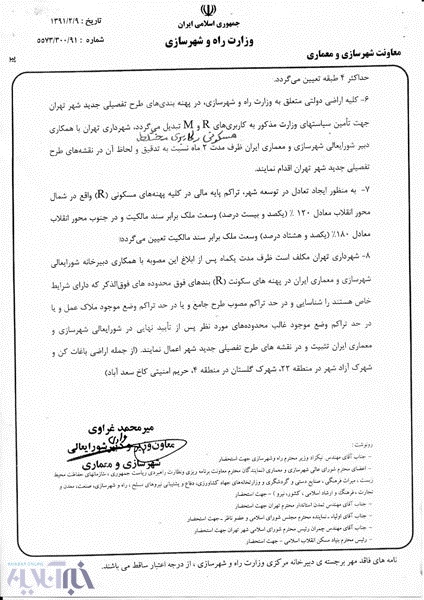 جمهوری اسلامی ایران
وزارت راه و شهرسازی
معاونت شهرسازی و معماری
تاریخ : ۱۳۹۱/۲/۹
شماره : ۵۵۷۳/۳۰۰/۹۱
حداکثر ۴ طبقه تعیین می‌گردد.
۶- کلیه اراضی دولتی متعلق به وزارت راه و شهرسازی، در پهنه بندی‌های طرح تفصیلی جدید شهر تهران
جهت تأمین سیاستهای وزارت مذکور به کاربری‌های R و M تبدیل می‌گردد، شهرداری تهران با همکاری
دبیر شورایعالی شهرسازی و معماری ایران ظرف مدت ۲ ماه نسبت به تدقیق و لحاظ آن در نقشه‌های طرح
تفصیلی جدید شهر تهران اقدام نمایند.
۷- به منظور ایجاد تعادل در توسعه شهر، تراکم پایه مالی در کلیه پهنه‌های مسکونی (R) واقع در شمال
محور انقلاب معادل ۱۲۰ ٪ (یکصد و بیست درصد) وسعت ملک برابر سند مالکیت و در جنوب محور انقلاب
معادل ۱۸۰٪ (یکصد و هشتاد درصد) وسعت ملک برابر سند مالکیت تعیین می‌گردد:
۸- شهرداری تهران مکلف است ظرف مدت یکماه پس از ابلاغ این مصوبه با همکاری دبیرخانه شورایعالی
شهرسازی و معماری ایران در پهنه های سکونت (R) بندهای فوق محدوده های فوق‌الذکر که دارای شرایط
خاص هستند را شناسایی و در حد تراکم مصوب طرح جامع و یا در حد تراکم وضع موجود ملاک عمل و یا
در حد تراکم وضع موجود غالب محدوده‌های مورد نظر پس از تأیید نهایی در شورایعالی شهرسازی و
معماری ایران تثبیت و در نقشه های طرح تفصیلی جدید شهر اعمال نمایند. (از جمله اراضی باغات کن و
شهرک آزاد شهر در منطقه ۲۲، شهرک گلستان در منطقه ۴، حریم امنیتی کاخ سعد آباد)
میرمحمد غراوی
معاون وزیر و دبیر شورایعالی
شهرسازی و معماری
رونوشت :
- جناب آقای مهندس نیکزاد وزیر محترم راه و شهرسازی جهت استحضار
- اعضای محترم شورای عالی شهرسازی و معماری (نمایندگان محترم معاونت برنامه ریزی ونظارت راهبردی ریاست جمهوری ، سازمانهای حفاظت محیط
زیست ، میراث فرهنگی ، صنایع دستی و گردشگری و وزارتخانه‌های جهاد کشاورزی، دفاع و پشتیبانی نیروهای مسلح ، راه و شهرسازی، صنعت، معدن و
تجارت ، فرهنگ و ارشاد اسلامی ، کشور، نیرو ) – جهت استحضار
- جناب آقای مهندس تمدن استاندار محترم تهران جهت استحضار
- جناب آقای اولیاء ، نماینده محترم مجلس شورای اسلامی و عضو ناظر – جهت استحضار
- جناب آقای مهندس چمران رئیس محترم شورای اسلامی شهر تهران جهت استحضار
- رئیس محترم بنیاد مسکن انقلاب اسلامی – جهت استحضار
نامه های فاقد مهر برجسته ی دبیرخانه مرکزی وزارت راه و شهرسازی ، از درجه اعتبار ساقط می باشند.
خبرآنلاین